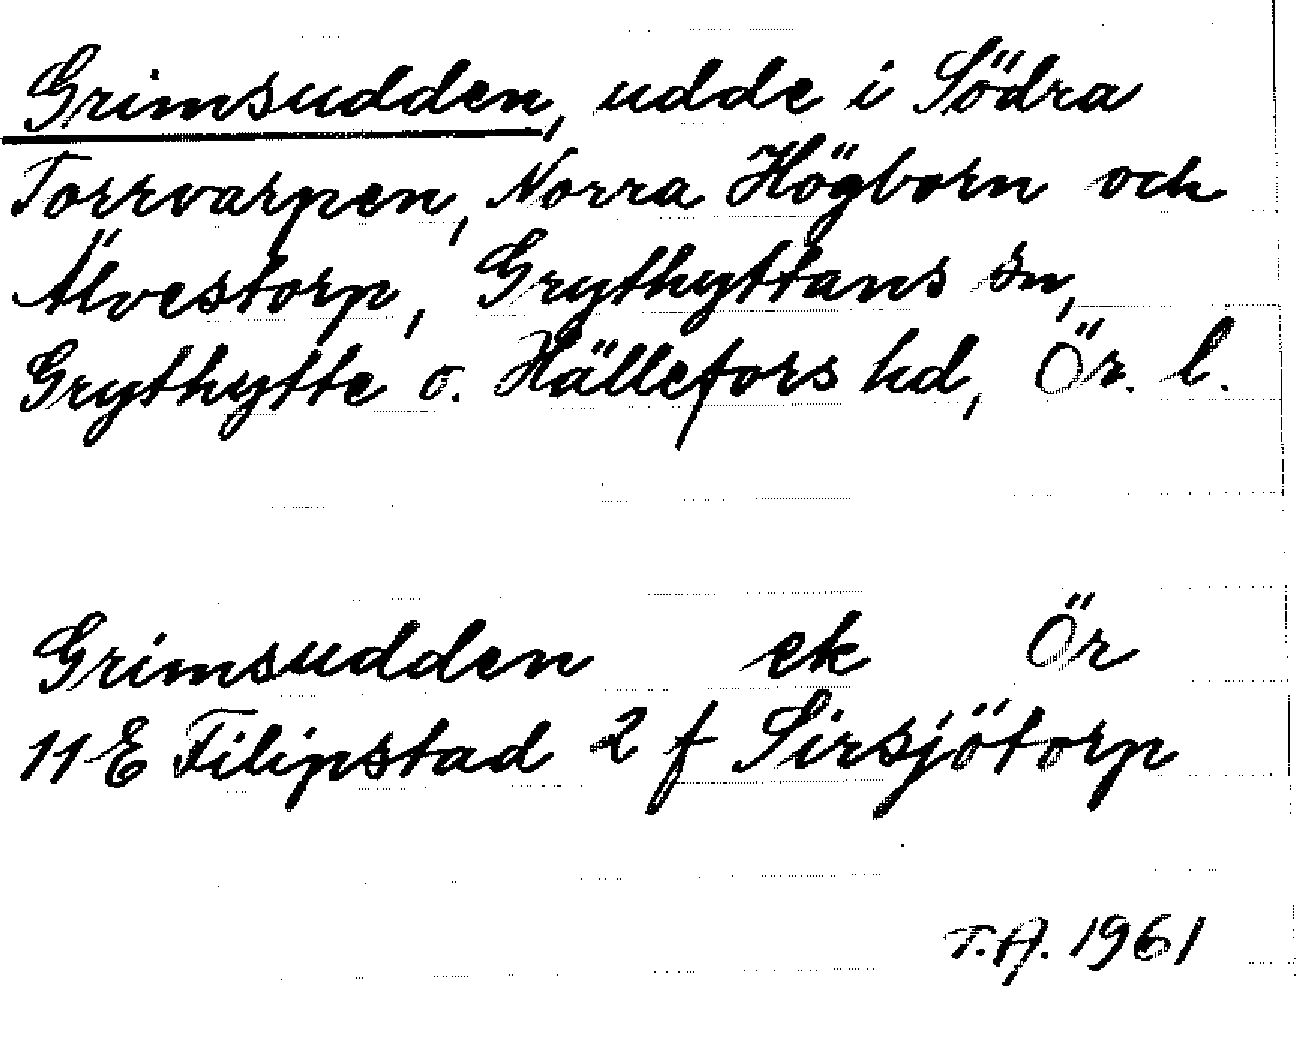 Grimsudden, udde i Södra
Torrvarpen, Norra Högborn och
Älvestorp, Grythyttans sn,
Grythytte o. Hällefors hd, Ör. l.
Grimsudden ek Ör
11 E Filipstad 2 f Sirsjötorp
T.A. 1961